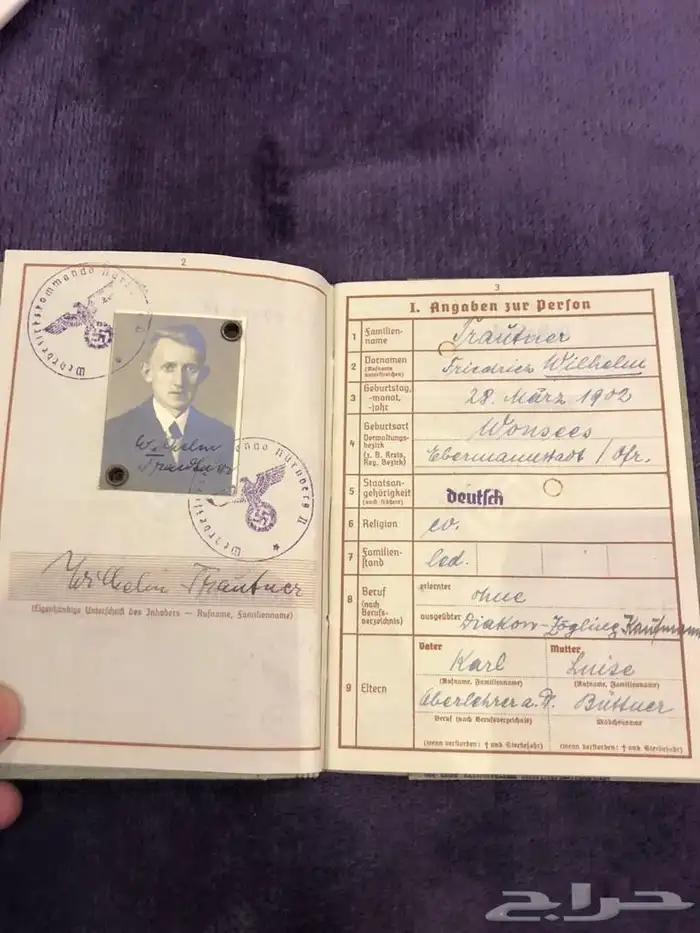 2
Wehrbezirkskommando Nürnberg
Wilhelm
Trautner
Wehrbezirkskommando Nürnberg II
Wilhelm Trautner
(Eigenhändige Unterschrift des Inhabers — Rufname, Familienname)
3
I. Angaben zur Person
1 Familien-
name
Trautner
2 Vornamen
(Rufname
unterstreichen)
Friedrich Wilhelm
3 Geburtstag,
-monat,
-jahr
28. März 1902
4 Geburtsort
Verwaltungs-
bezirk
(z. B. Kreis,
Reg. Bezirk)
Wonsees
Ebermannstadt / Ofr.
5 Staatsan-
gehörigkeit
(auch frühere)
deutsch
6 Religion
ev.
7 Familien-
stand
led.
8 Beruf
(nach
Berufs-
verzeichnis)
erlernter
ohne
ausgeübter
Diakon-Zögling Kaufmann
9 Eltern
Vater
Karl
(Rufname, Familienname)
Oberlehrer a. D.
Beruf (nach Berufsverzeichnis)
(wenn verstorben: † und Sterbejahr)
Mutter
Luise
(Rufname, Familienname)
Büttner
Mädchenname
(wenn verstorben: † und Sterbejahr)
حراج